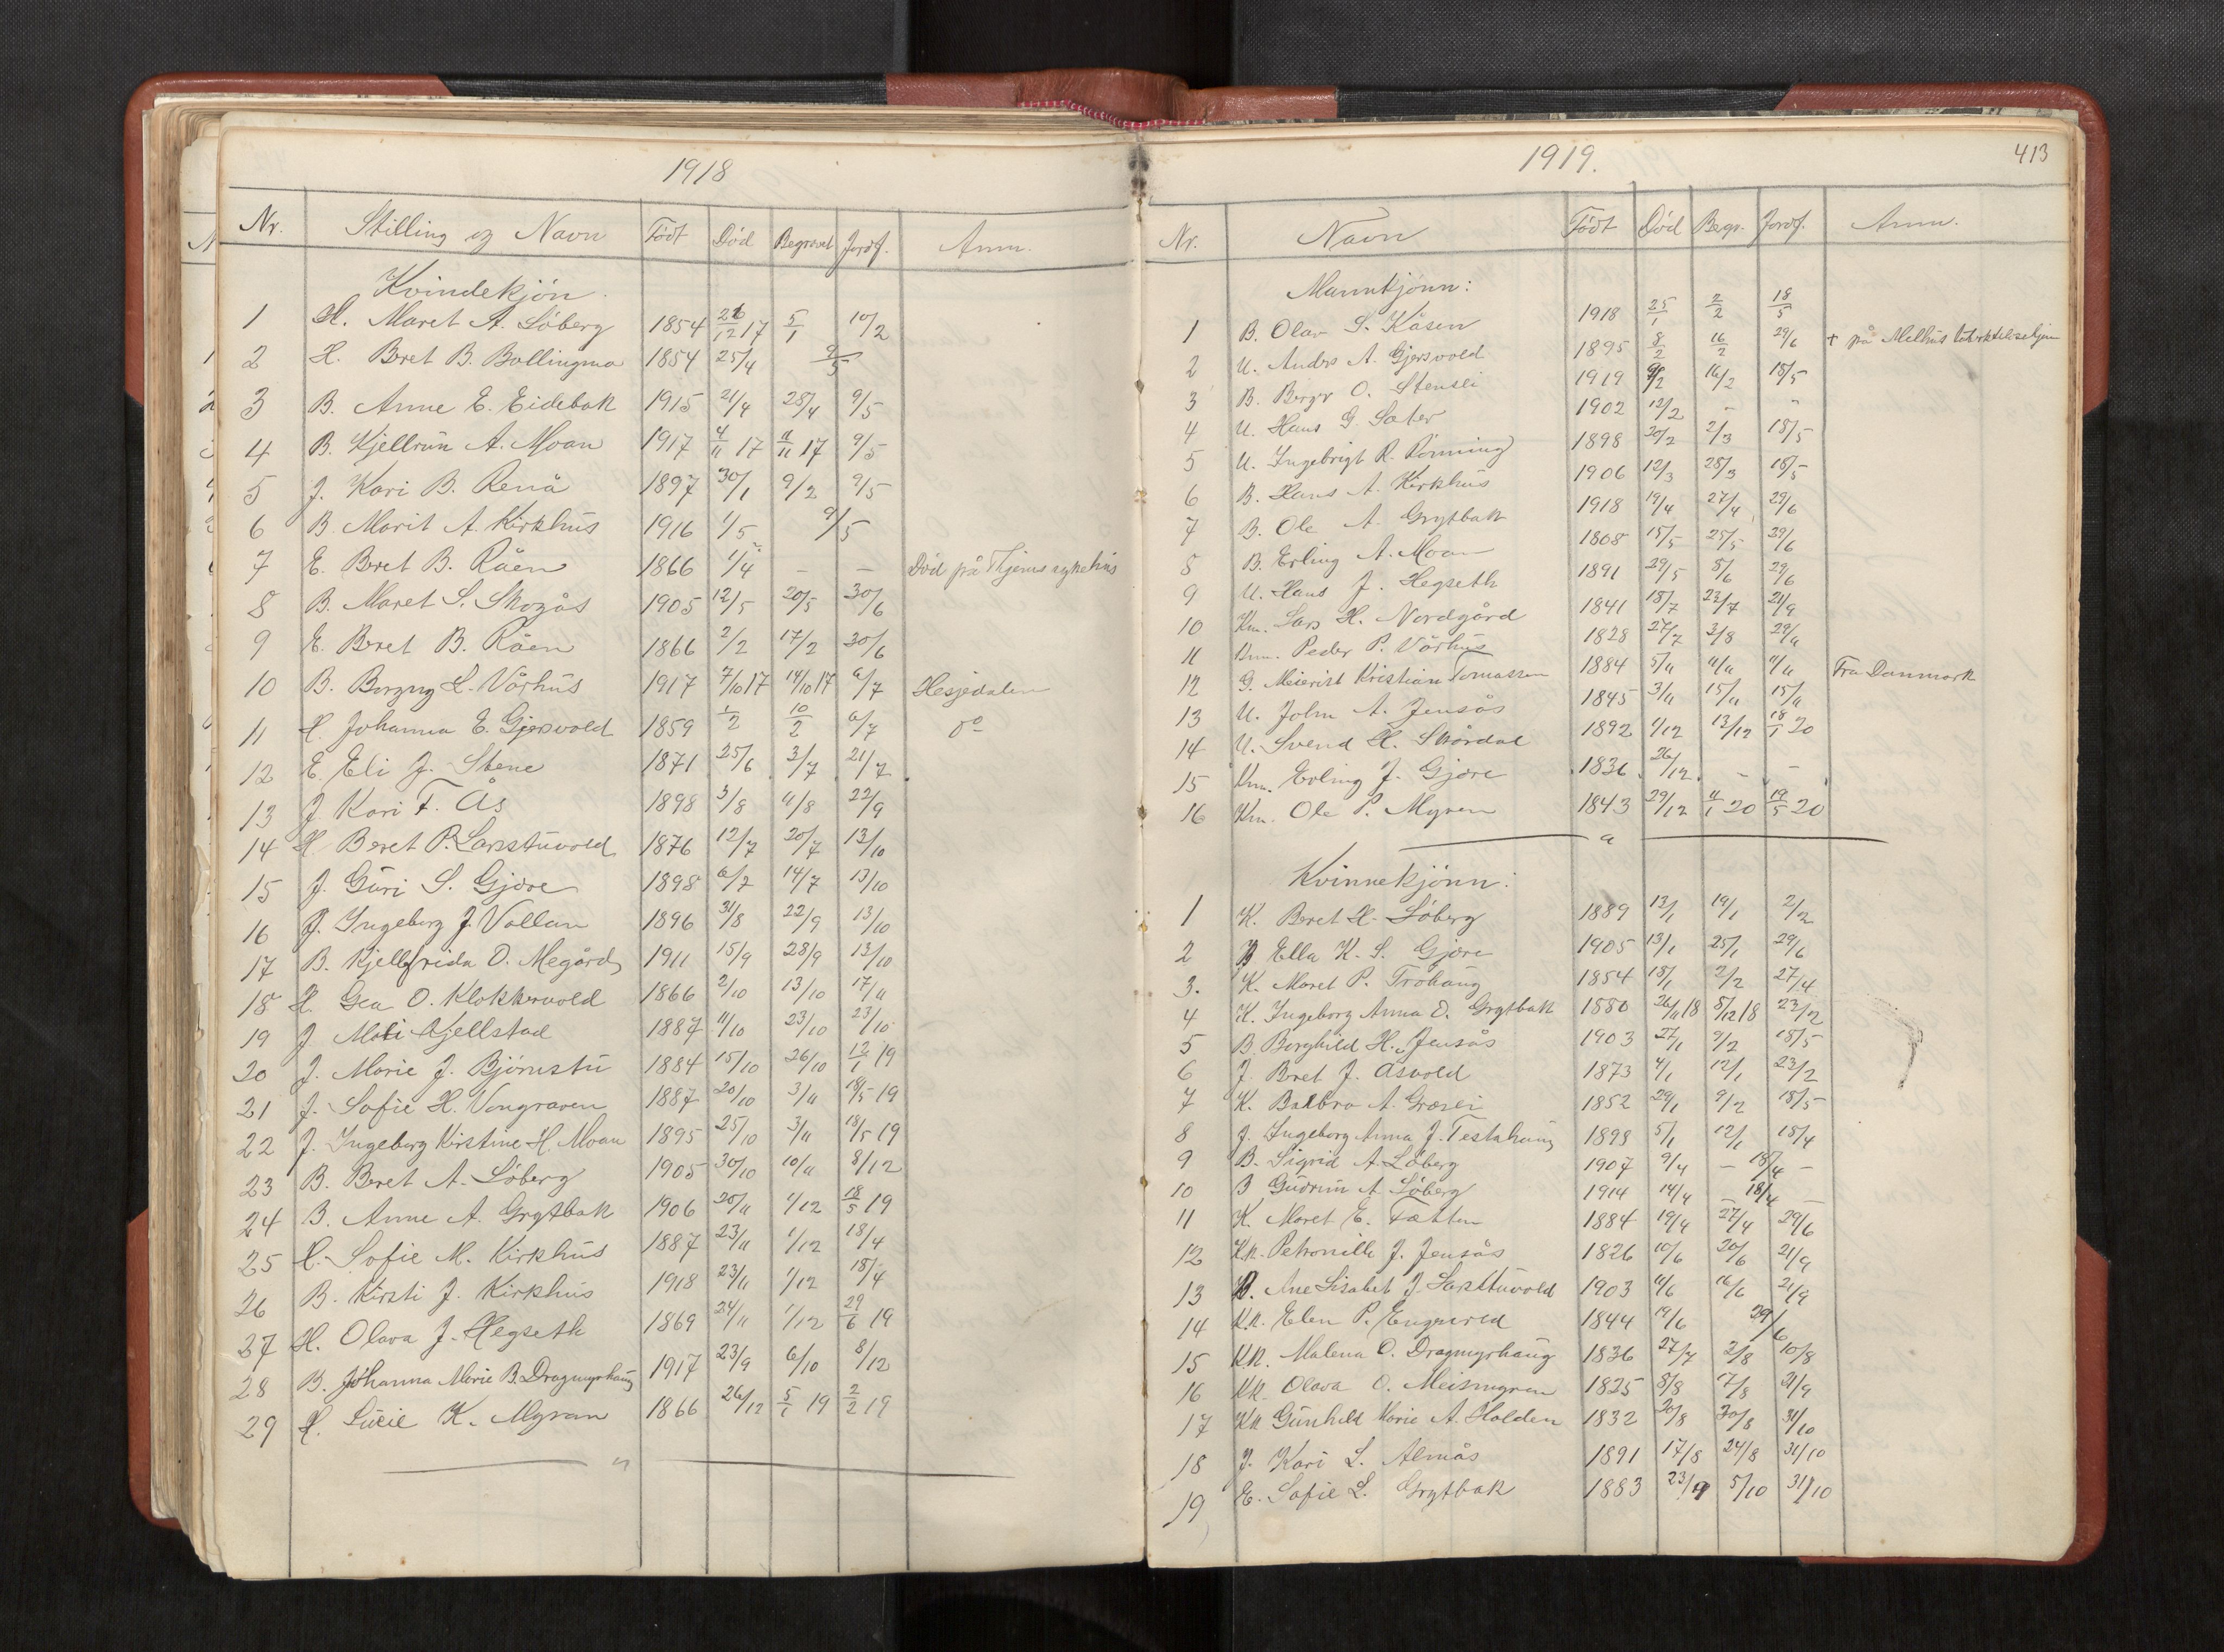 1918
Nr. Stilling og Navn Født Død Begravet Jordf. Anm.
Kvindekjøn.
1 H. Maret A. Løberg 1854 26/12 17 5/1 10/2
2 H. Beret B. Bollingmo 1854 25/4 9/5
3 B. Anne E. Eidebak 1915 21/4 28/4 9/5
4 B. Kjellrun A. Moan 1917 4/11 17 11/11 17 9/5
5 J. Kari B. Renå 1897 30/1 9/2 9/5
6 B. Marit A. Kirkhus 1916 1/5 9/5
7 E. Beret B. Råen 1866 1/4 – – Død på Thjems sykehus
8 B. Maret S. Skogås 1905 12/5 20/5 30/6
9 E. Beret B. Råen 1866 2/2 17/2 30/6
10 B. Borgny L. Vårhus 1917 7/10 17 14/10 17 6/7 Hesjedalen
11 H. Johanna E. Gjersvold 1859 1/2 10/2 6/7 do
12 E. Eli J. Stene 1871 25/6 3/7 21/7
13 J. Kari T. Ås 1898 3/8 11/8 22/9
14 H. Beret P. Larsstuvold 1876 12/7 20/7 13/10
15 J. Guri S. Gjøre 1898 6/7 14/7 13/10
16 J. Ingeborg J. Vollan 1896 31/8 22/9 13/10
17 B. Kjellfrida O. Megård 1911 15/9 28/9 13/10
18 H. Gea O. Klokkervold 1866 2/10 13/10 17/11
19 J. Mali Kjellstad 1887 11/10 23/10 23/10
20 J. Marie J. Bjørnstu 1884 15/10 26/10 12/1 19
21 J. Sofie H. Vongraven 1887 20/10 3/11 18/5 19
22 J. Ingeborg Kirstine H. Moan 1895 25/10 3/11 18/5 19
23 B. Beret A. Løberg 1905 30/10 10/11 8/12
24 B. Anne A. Grytbak 1906 20/11 1/12 18/5 19
25 E. Sofie M. Kirkhus 1887 23/11 1/12 18/4
26 B. Kirsti J. Kirkhus 1918 23/11 1/12 18/4
27 H. Olava J. Hegseth 1869 24/11 1/12 29/6 19
28 B. Johanna Marie B. Dragmyrhaug 1917 23/9 6/10 8/12
29 H. Lucie K. Myran 1866 26/12 5/1 19 2/2 19
1919. 413
Nr. Navn Født Død Begr. Jordf. Anm.
Mannkjønn:
1 B. Olav S. Kåsen 1918 25/1 2/2 18/5
2 U. Anders A. Gjersvold 1895 8/2 16/2 29/6 + på Melhus
3 B. Berger O. Stensli 1919 9/2 16/2 18/5
4 U. Hans G. Sater 1902 12/2 – –
5 U. Ingebrigt R. Rønning 1898 20/2 2/3 18/5
6 B. Hans A. Kirkhus 1906 12/3 28/3 18/5
7 B. Ole A. Grytbak 1918 19/4 27/4 29/6
8 B. Erling A. Moan 1808 15/5 25/5 29/6
9 U. Hans J. Hegseth 1891 29/5 8/6 29/6
10 Km. Lars H. Nordgård 1841 18/7 23/7 21/9
11 Km. Peder P. Vårhus 1828 27/7 3/8 29/11
12 G. Meierist Kristian Tomassen 1884 5/11 11/11 11/11 Fra Danmark
13 U. John A. Jensås 1845 3/11 15/11 15/11
14 U. Svend H. Skårdal 1892 1/12 13/12 18/1 20
15 Km. Erling J. Gjøre 1836 26/12 – –
16 Km. Ole P. Myren 1843 29/12 11/1 20 19/5 20
Kvinnekjønn:
1 K. Beret H. Løberg 1889 13/1 19/1 2/2
2 B Ella K. S. Gjøre 1905 13/1 25/1 29/6
3. K. Maret P. Trøhaug 1854 18/1 2/2 27/4
4 K. Ingeborg Anna O. Grytbak 1880 26/11 18 8/12 18 23/2
5 B. Borghild H. Jensås 1903 27/1 9/2 18/5
6 J. Beret J. Åsvold 1873 4/1 12/1 23/2
7 K. Balbro A. Græsli 1852 29/1 9/2 18/5
8 J. Ingeborg Anna J. Testahaug 1898 5/1 12/1 18/4
9 B. Sigrid A. Løberg 1907 9/4 – 18/4 –
10 B Gudrun A. Løberg 1914 14/4 – 18/4 –
11 K. Maret E. Tætten 1884 19/4 27/4 29/6
12 K.k. Petronille J. Jensås 1826 10/6 20/6 21/9
13 B. Ane Lisabet J. Larsstuvold 1903 11/6 16/6 21/9
14 K.k. Elen P. Engsved 1844 19/6 29/6
15 K.k. Malena O. Dragmyrhaug 1836 27/7 2/8 10/8
16 K.k. Olava O. Meismyren 1825 8/8 17/8 21/9
17 K.k Gunhild Marie A. Holden 1832 20/8 30/8 31/10
18 J. Kari L. Almås 1891 17/8 24/8 31/10
19 E. Sofie L. Grytbak 1883 23/9 5/10 31/10